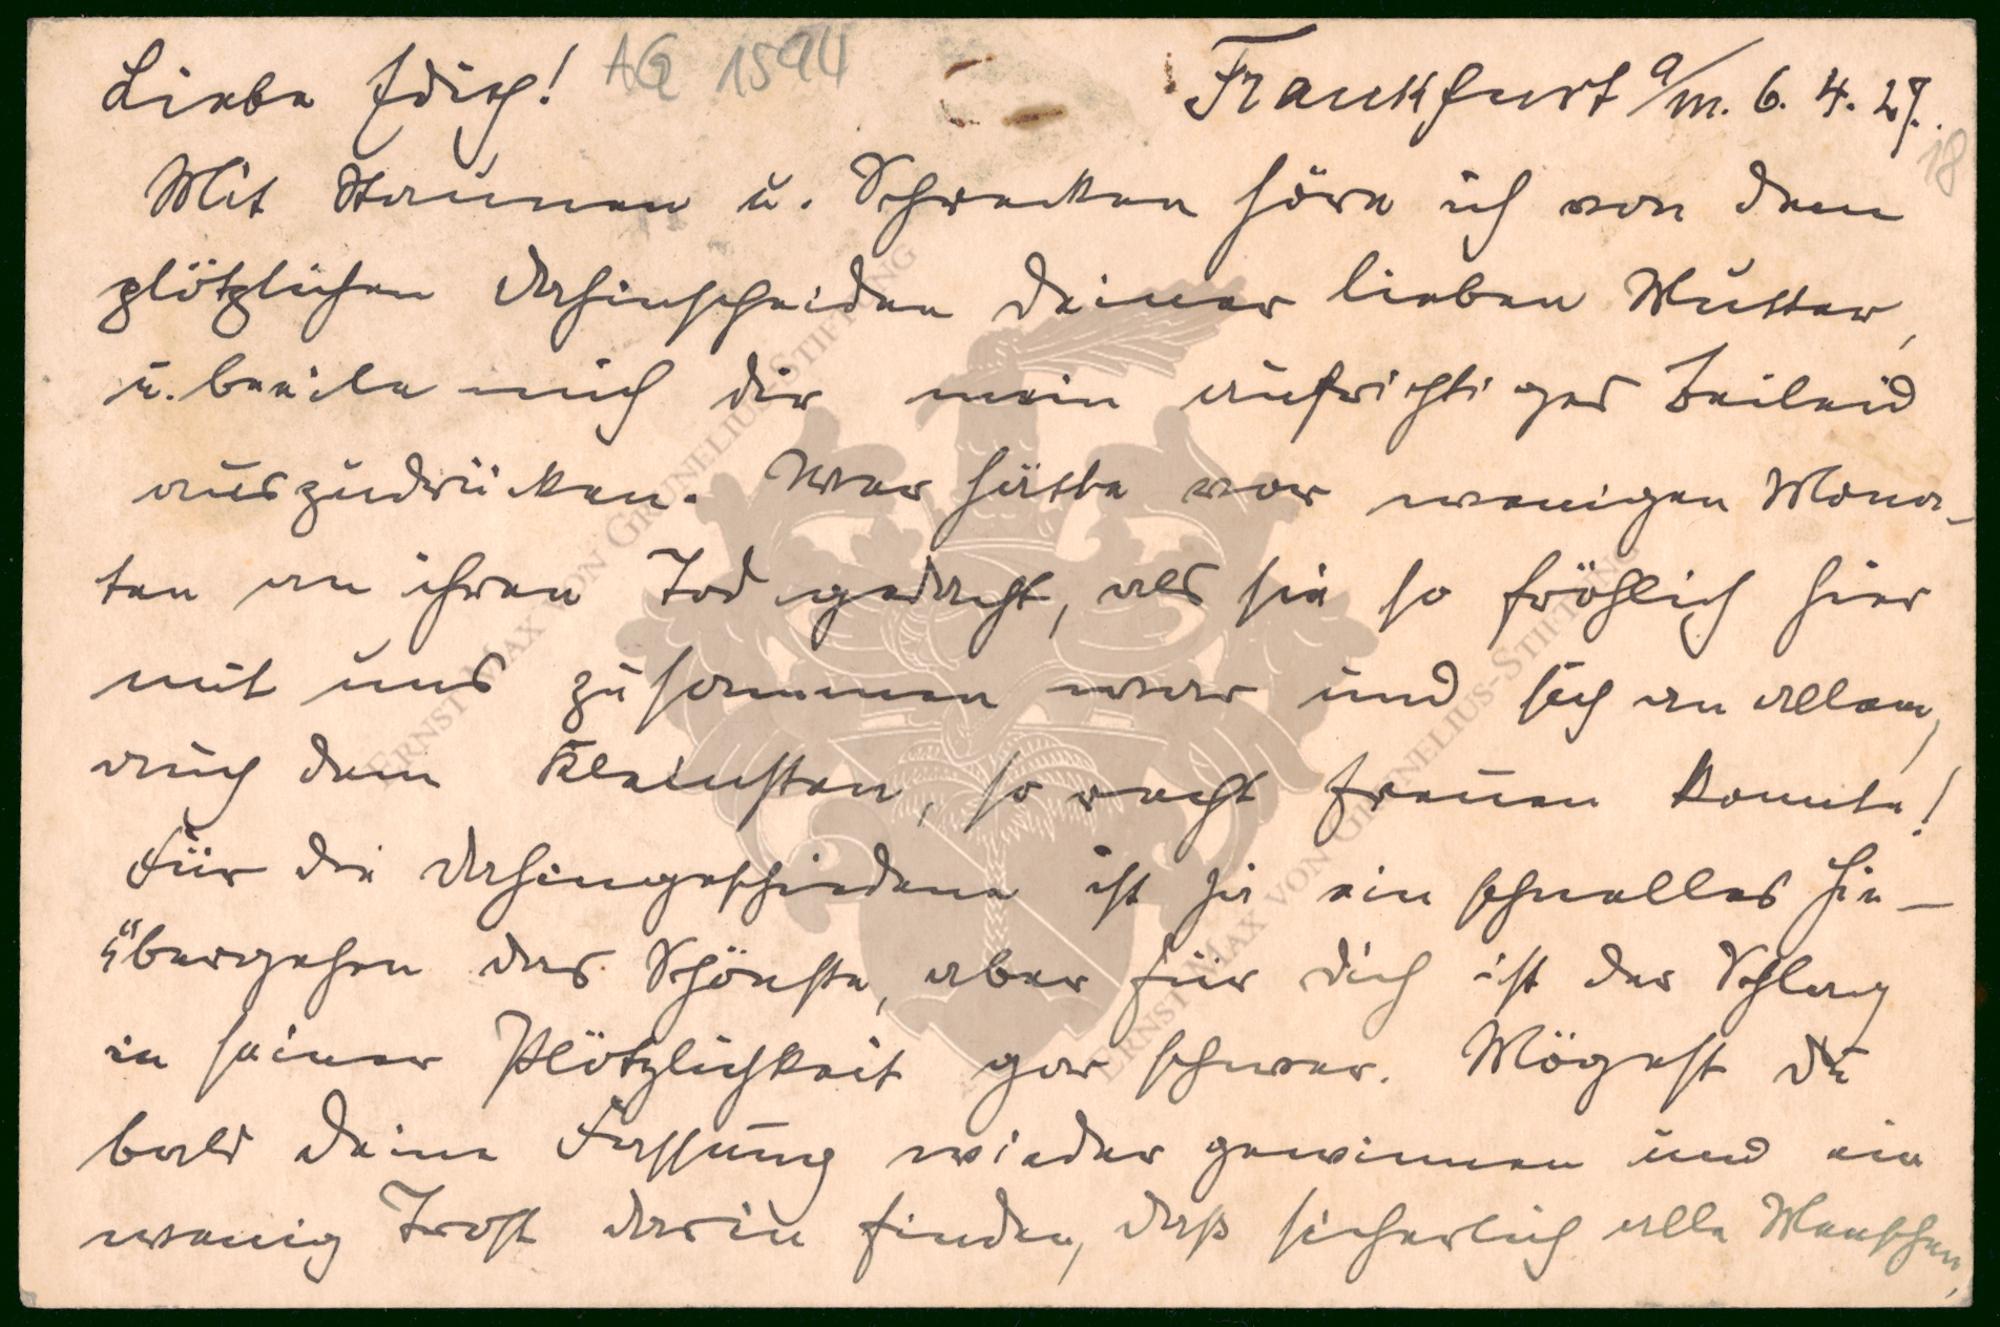 Liebe Edith! AG 1594 Frankfurt a/M. 6. 4. 27.
18
Mit Staunen u. Schrecken höre ich von dem
plötzlichen Dahinscheiden Deiner lieben Mutter,
u. beeile mich dir mein aufrichtiges Beileid
auszudrücken. Wer hätte vor wenigen Mona-
ten an ihren Tod gedacht, als sie so fröhlich hier
mit uns zusammen war und sich an allem,
auch dem Kleinsten, so recht freuen konnte!
Für die Dahingeschiedene ist ja ein schnelles Hin-
übergehen das Schönste, aber für Dich ist der Schlag
in seiner Plötzlichkeit gar schwer. Mögest du
bald Deine Fassung wieder gewinnen und ein
wenig Trost darin finden, daß sicherlich alle Menschen,
Ernst Max von Grunelius-Stiftung
Ernst Max von Grunelius-Stiftung